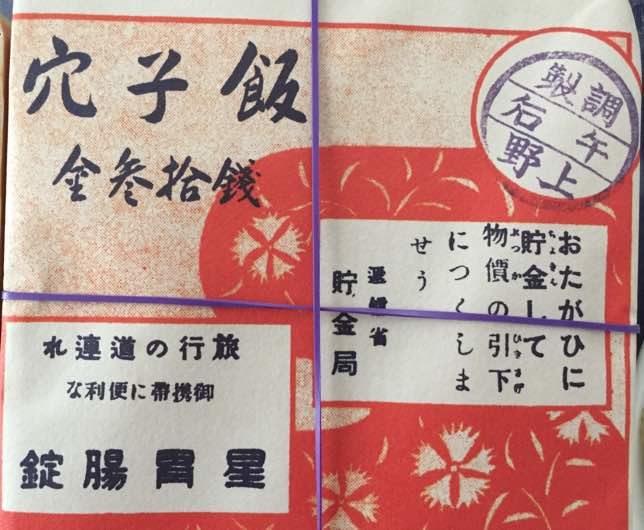 穴子飯
金参拾錢
調製
午
上野
おたがひに
貯金して
物價の引下
につくしま
せう
遞信省
貯金局
旅行の道連れ
御携帶に便利な
星胃腸錠